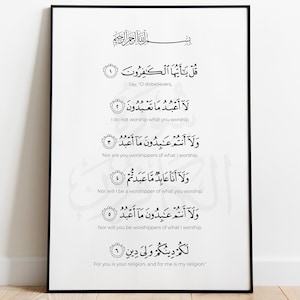 بسم الله الرحمن الرحيم
قُلْ يَـٰٓأَيُّهَا ٱلْكَـٰفِرُونَ ١
Say, "O disbelievers,
لَآ أَعْبُدُ مَا تَعْبُدُونَ ٢
I do not worship what you worship.
وَلَآ أَنتُمْ عَـٰبِدُونَ مَآ أَعْبُدُ ٣
Nor are you worshippers of what I worship.
وَلَآ أَنَا۠ عَابِدٌ مَّا عَبَدتُّمْ ٤
Nor will I be a worshipper of what you worship.
وَلَآ أَنتُمْ عَـٰبِدُونَ مَآ أَعْبُدُ ٥
Nor will you be worshippers of what I worship.
لَكُمْ دِينُكُمْ وَلِىَ دِينِ ٦
For you is your religion, and for me is my religion."